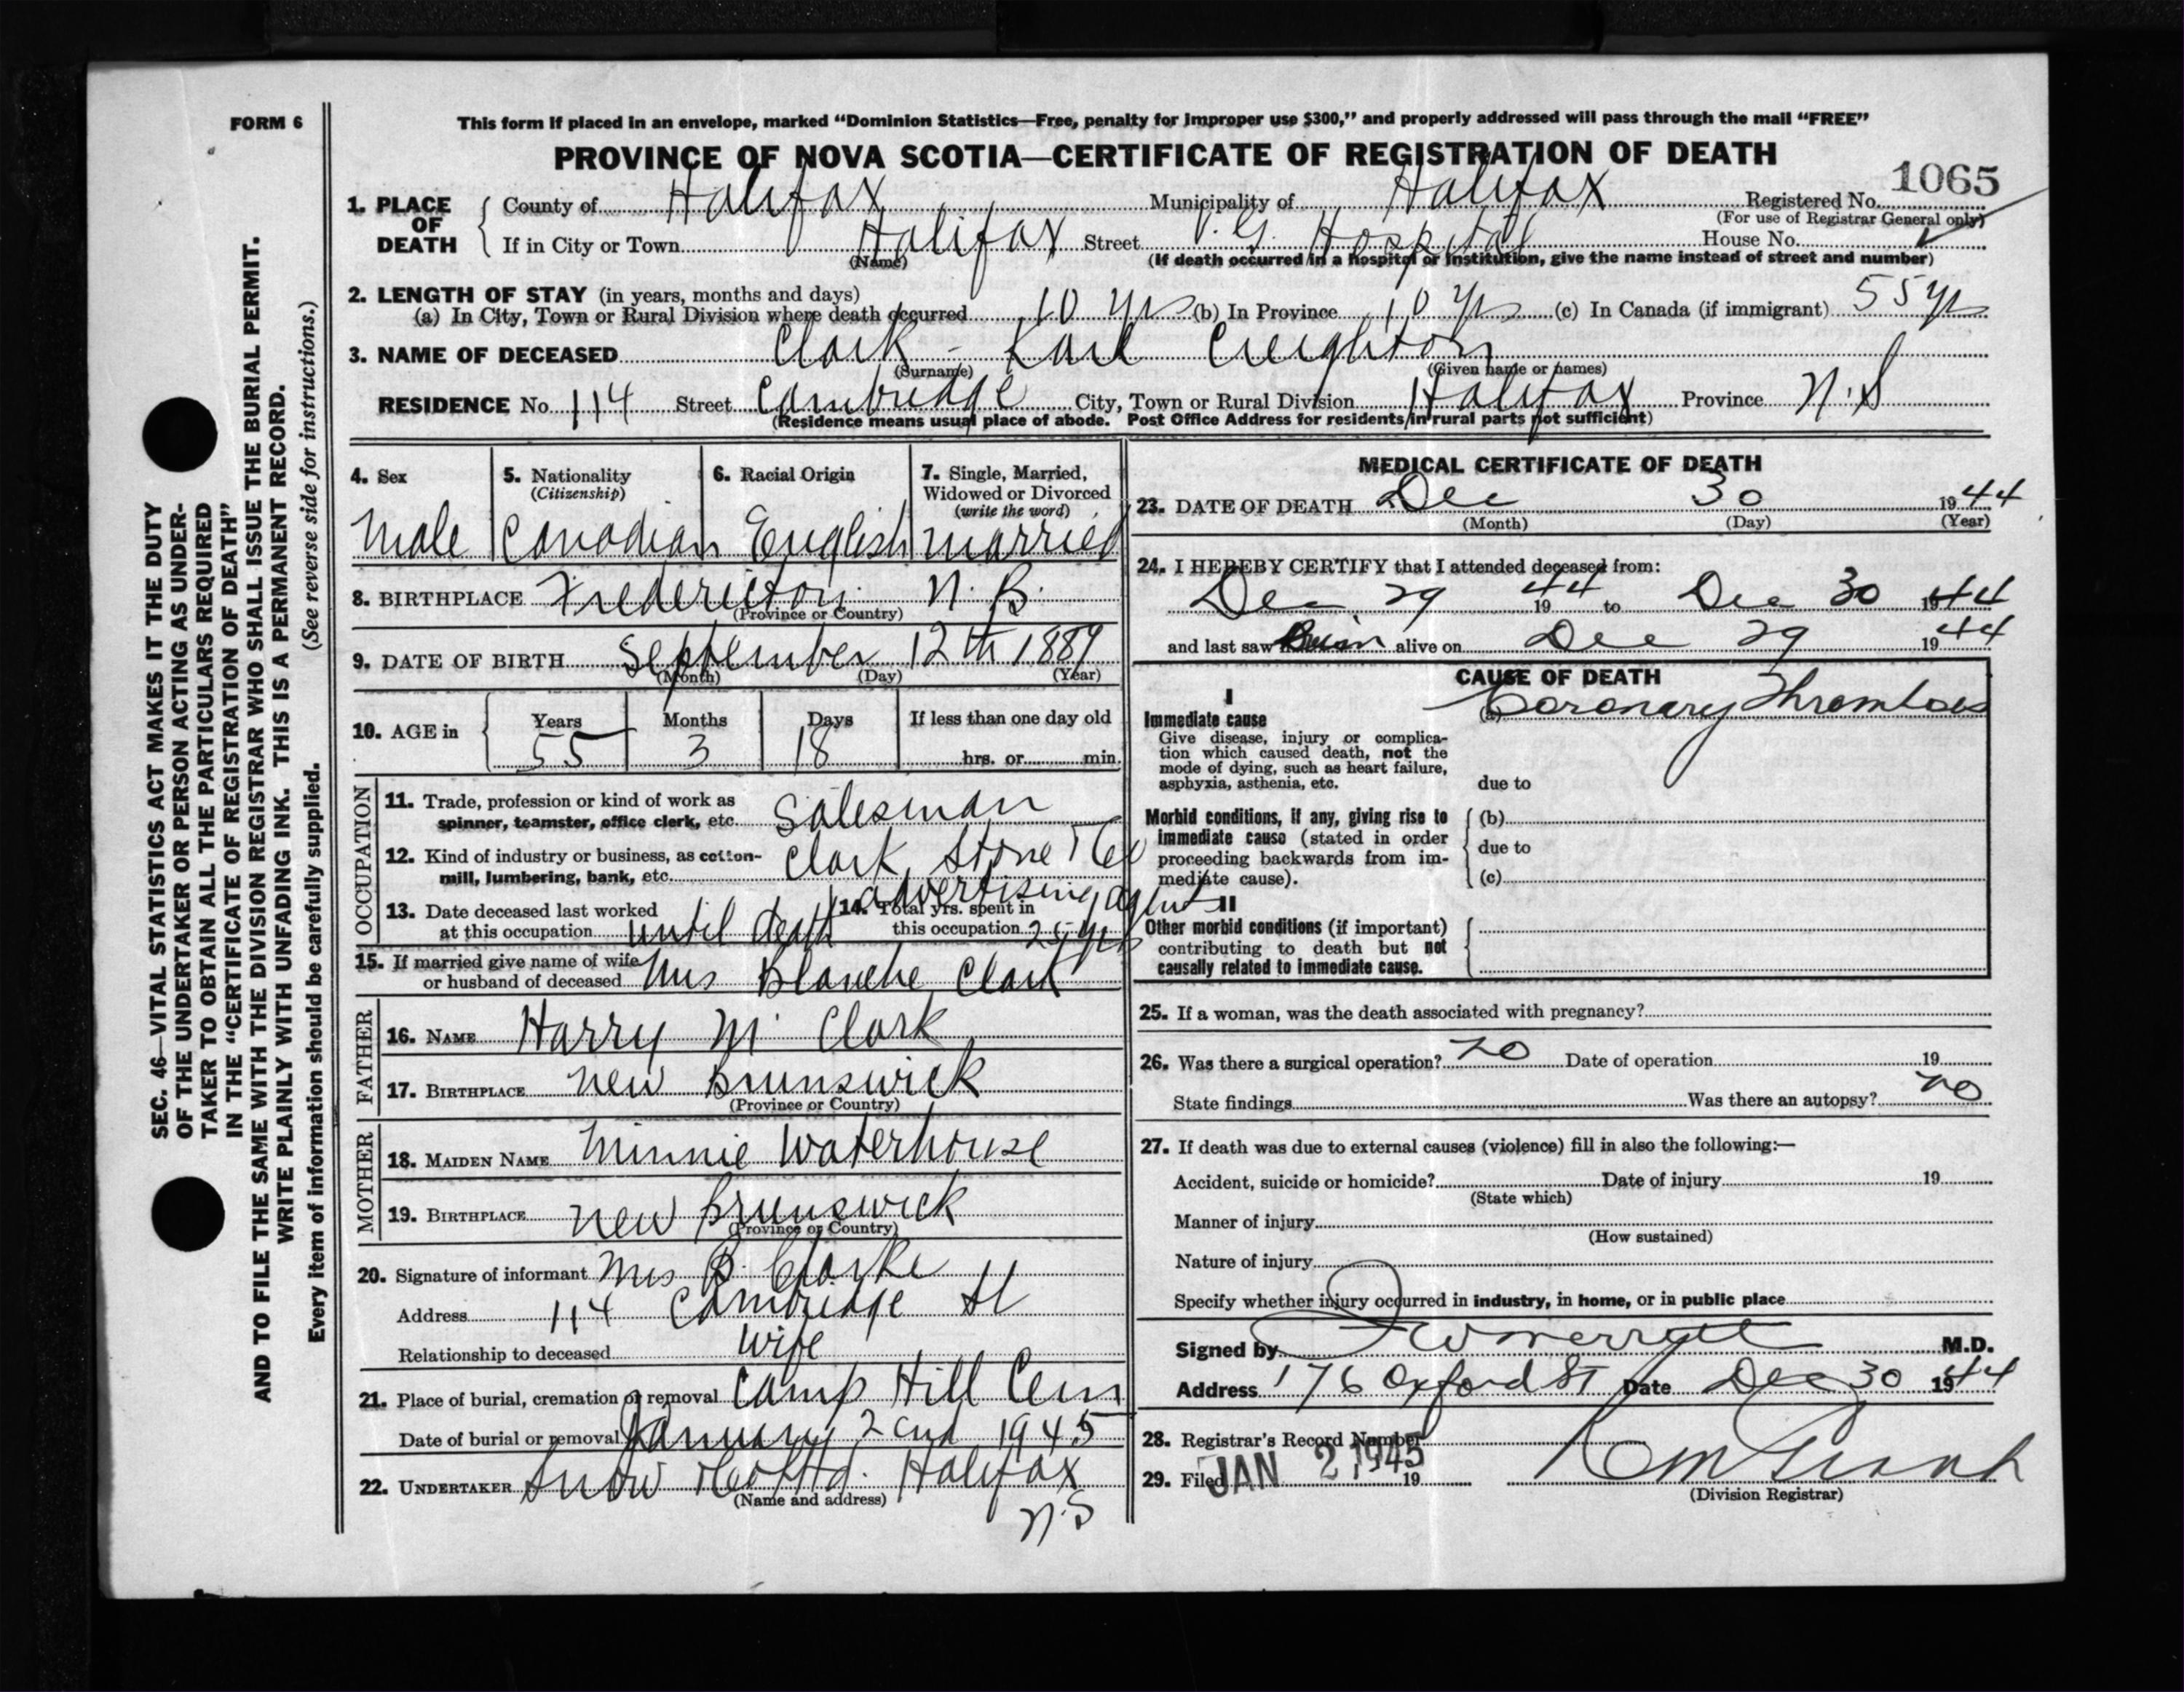 FORM 6
This form if placed in an envelope, marked “Dominion Statistics—Free, penalty for improper use $300,” and properly addressed will pass through the mail “FREE”
PROVINCE OF NOVA SCOTIA—CERTIFICATE OF REGISTRATION OF DEATH
1065
1. PLACE OF DEATH
County of Halifax Municipality of Halifax Registered No.
(For use of Registrar General only)
If in City or Town Halifax Street V. G. Hospital House No.
(Name) (If death occurred in a hospital or institution, give the name instead of street and number)
2. LENGTH OF STAY (in years, months and days)
(a) In City, Town or Rural Division where death occurred 10 yrs (b) In Province 10 yrs (c) In Canada (if immigrant) 55 yrs
3. NAME OF DECEASED Clark - Karl Creighton
(Surname) (Given name or names)
RESIDENCE No. 114 Street Cambridge City, Town or Rural Division Halifax Province N.S
(Residence means usual place of abode. Post Office Address for residents in rural parts not sufficient)
4. Sex
Male
5. Nationality
(Citizenship)
Canadian
6. Racial Origin
English
7. Single, Married,
Widowed or Divorced
(write the word)
married
8. BIRTHPLACE Fredericton N. B.
(Province or Country)
9. DATE OF BIRTH September 12th 1889
(Month) (Day) (Year)
10. AGE in
Years Months Days If less than one day old
55 3 18 hrs. or min.
OCCUPATION
11. Trade, profession or kind of work as
spinner, teamster, office clerk, etc. Salesman
12. Kind of industry or business, as cotton-
mill, lumbering, bank, etc. Clark, Stone & Co
advertising agents
13. Date deceased last worked
at this occupation until death
14. Total yrs. spent in
this occupation 25 yrs
15. If married give name of wife
or husband of deceased Mrs Blanche Clark
FATHER
16. NAME Harry M Clark
17. BIRTHPLACE New Brunswick
(Province or Country)
MOTHER
18. MAIDEN NAME Minnie Waterhouse
19. BIRTHPLACE New Brunswick
(Province or Country)
20. Signature of informant Mrs B. Clarke
Address 114 Cambridge St
Relationship to deceased wife
21. Place of burial, cremation or removal Camp Hill Cem
Date of burial or removal January 2nd 1945
22. UNDERTAKER Snow & Co Ltd. Halifax
(Name and address)
N.S
MEDICAL CERTIFICATE OF DEATH
23. DATE OF DEATH Dec 30 1944
(Month) (Day) (Year)
24. I HEREBY CERTIFY that I attended deceased from:
Dec 29 1944 to Dec 30 1944
and last saw him alive on Dec 29 1944
CAUSE OF DEATH
I
Immediate cause
Give disease, injury or complica-
tion which caused death, not the
mode of dying, such as heart failure,
asphyxia, asthenia, etc.
(a) Coronary Thrombosis
due to
Morbid conditions, if any, giving rise to
immediate cause (stated in order
proceeding backwards from im-
mediate cause).
(b)
due to
(c)
II
Other morbid conditions (if important)
contributing to death but not
causally related to immediate cause.
25. If a woman, was the death associated with pregnancy?
26. Was there a surgical operation? no Date of operation 19
State findings Was there an autopsy? no
27. If death was due to external causes (violence) fill in also the following:—
Accident, suicide or homicide? Date of injury 19
(State which)
Manner of injury
(How sustained)
Nature of injury
Specify whether injury occurred in industry, in home, or in public place
Signed by M.D.
Address 176 Oxford St Date Dec 30 1944
28. Registrar's Record Number
29. Filed JAN 2 1945 19
(Division Registrar)
SEC. 46—VITAL STATISTICS ACT MAKES IT THE DUTY
OF THE UNDERTAKER OR PERSON ACTING AS UNDER-
TAKER TO OBTAIN ALL THE PARTICULARS REQUIRED
IN THE “CERTIFICATE OF REGISTRATION OF DEATH”
AND TO FILE THE SAME WITH THE DIVISION REGISTRAR WHO SHALL ISSUE THE BURIAL PERMIT.
WRITE PLAINLY WITH UNFADING INK. THIS IS A PERMANENT RECORD.
Every item of information should be carefully supplied. (See reverse side for instructions.)